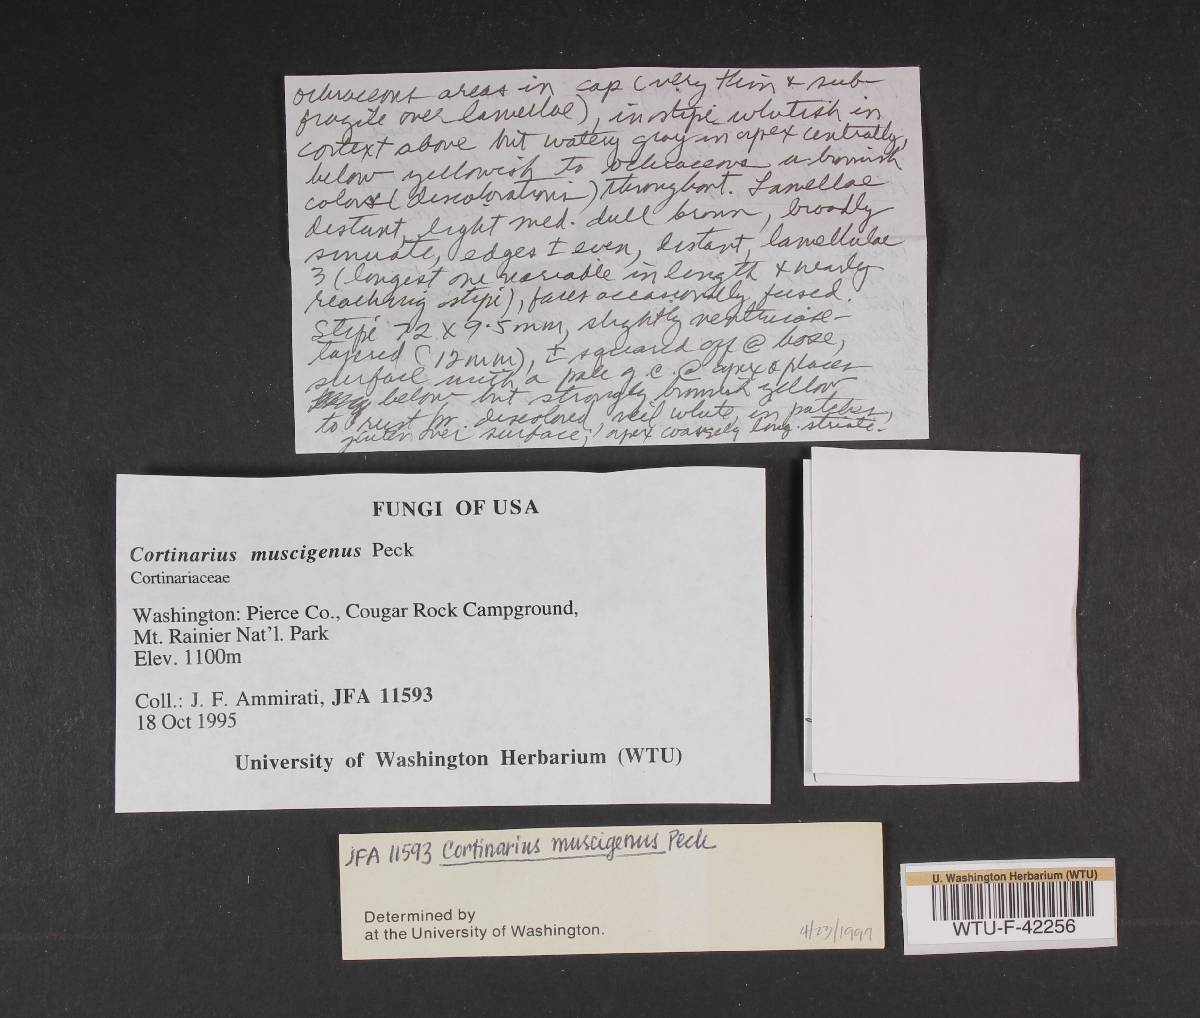 ochraceous areas in cap (very thin & sub-
fragile over lamellae), in stipe whitish in
cortext above but watery gray in apex centrally,
below yellowish to ochraceous a brownish
colors (discolorations) throughout. Lamellae
distant, light med. dull brown, broadly
sinuate, edges ± even, distant, lamellulae
3 (longest one variable in length & nearly
reaching stipe), faces occasionally fused.
Stipe 72 x 9.5mm, slightly ventricose-
tapered (12mm), ± squared off @ base,
surface with a pale g.c. @ apex & places
below but strongly brownish yellow
to rust br. discolored, veil white, in patches,
gluten over surface, apex coarsely long-striate.
FUNGI OF USA
Cortinarius muscigenus Peck
Cortinariaceae
Washington: Pierce Co., Cougar Rock Campground,
Mt. Rainier Nat'l. Park
Elev. 1100m
Coll.: J. F. Ammirati, JFA 11593
18 Oct 1995
University of Washington Herbarium (WTU)
JFA 11593 Cortinarius muscigenus Peck
Determined by
at the University of Washington.
4/23/1997
U. Washington Herbarium (WTU)
WTU-F-42256